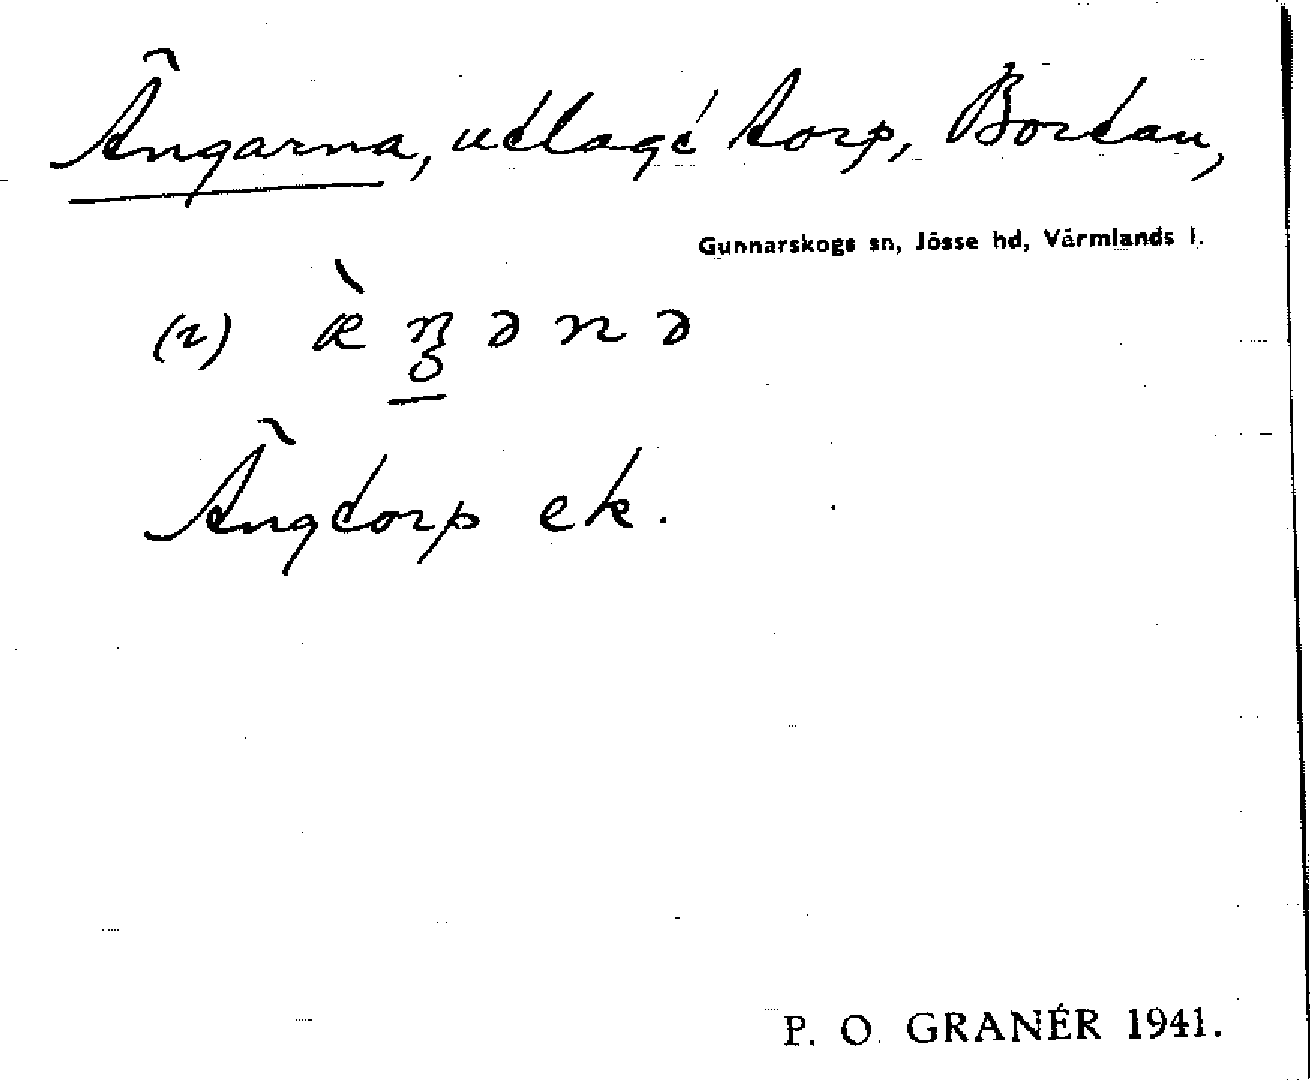 Ängarna, utlagt torp, Bortan,
Gunnarskogs sn, Jösse hd, Värmlands l.
(2) æ̀ŋənə
Ängtorp ek.
P. O. GRANÉR 1941.